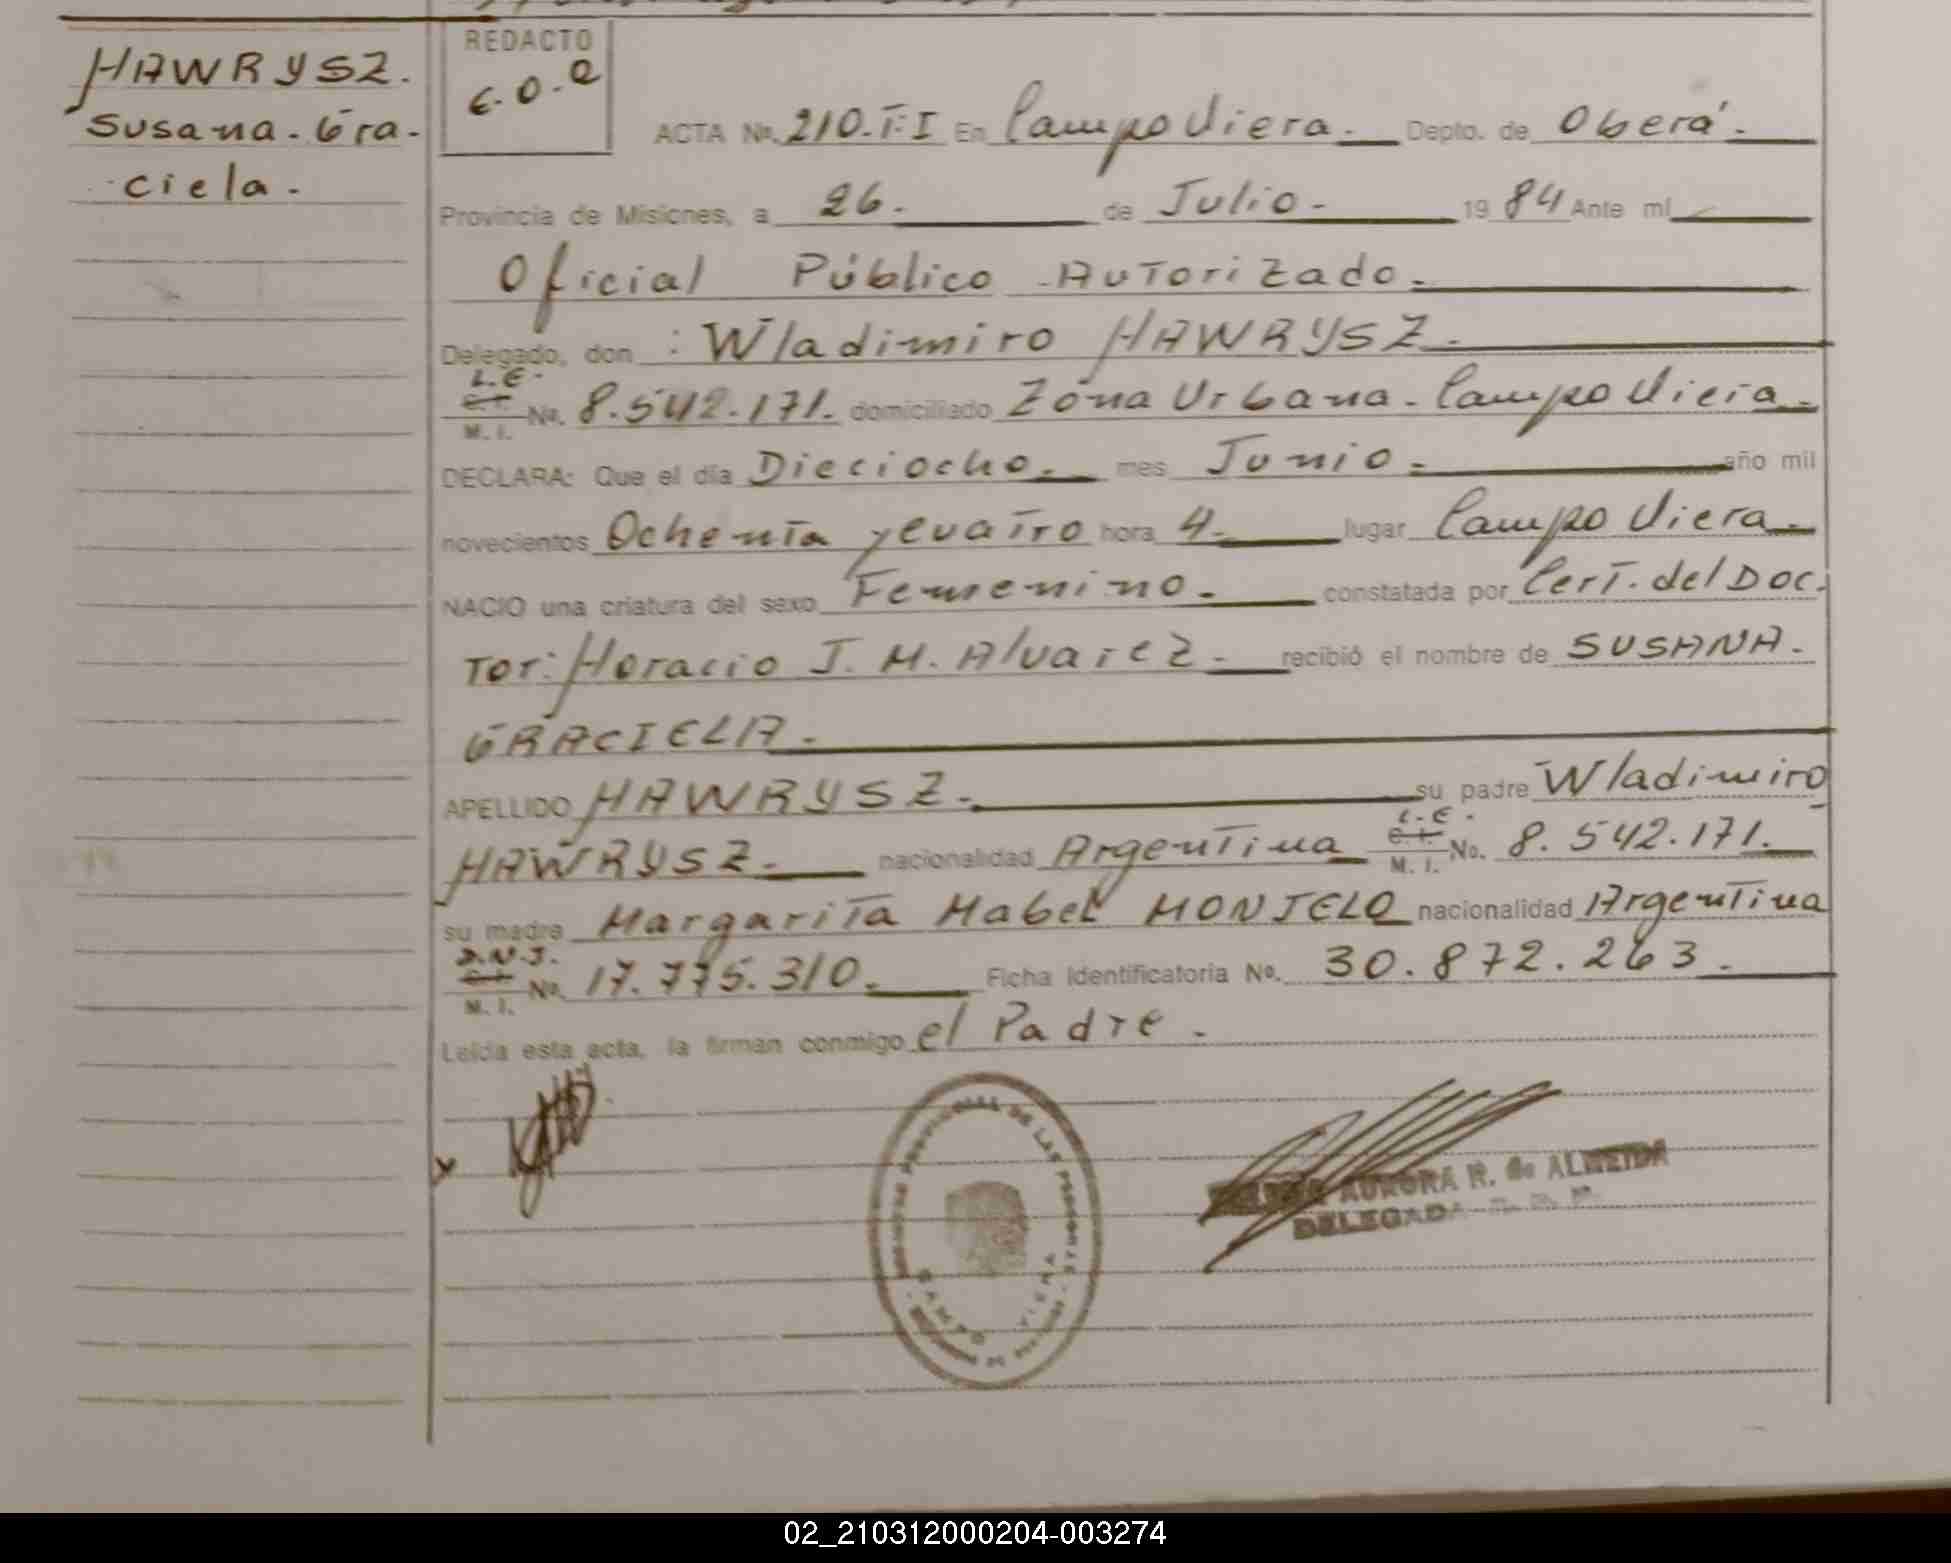 HAWRYSZ.
Susana. Gra-
ciela.
REDACTO
ACTA No. 210.T:I En Campo Viera. Depto. de Oberá.
Provincia de Misiones, a 26. de Julio. 1984 Ante mí
Oficial Público Autorizado.
Delegado, don: Wladimiro HAWRYSZ.
L.E.
C.I.
M.I. No. 8.542.171. domiciliado Zona Urbana. Campo Viera.
DECLARA: Que el día Dieciocho. mes Junio. año mil
novecientos Ochenta y cuatro hora 4. lugar Campo Viera.
NACIO una criatura del sexo Femenino. constatada por Cert. del Doc.
Tor: Horacio J. M. Alvarez. recibió el nombre de SUSANA.
GRACIELA.
APELLIDO HAWRYSZ. su padre Wladimiro
HAWRYSZ. nacionalidad Argentina L.E. C.I. M.I. No. 8.542.171.
su madre Margarita Mabel MONJELO nacionalidad Argentina
D.N.I.
C.I.
M.I. No. 17.775.310. Ficha Identificatoria No. 30.872.263.
Leída esta acta, la firman conmigo el Padre.
PROVINCIAL DE LAS PERSONAS
CAMPO VIERA
AURORA R. de ALMEIDA
DELEGADA
02_210312000204-003274